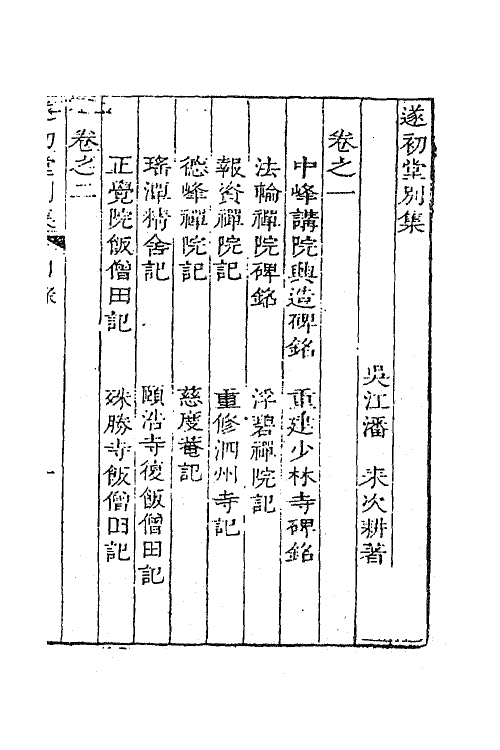 遂初堂別集
吳江潘　耒次耕著
卷之一
中峰講院興造碑銘　重建少林寺碑銘
法輪禪院碑銘　浮碧禪院記
報資禪院記　重修泗州寺記
德峰禪院記　慈度菴記
瑤潭精舍記　頤浩寺復飯僧田記
正覺院飯僧田記　殊勝寺飯僧田記
卷之二
遂初堂別集　目錄　一